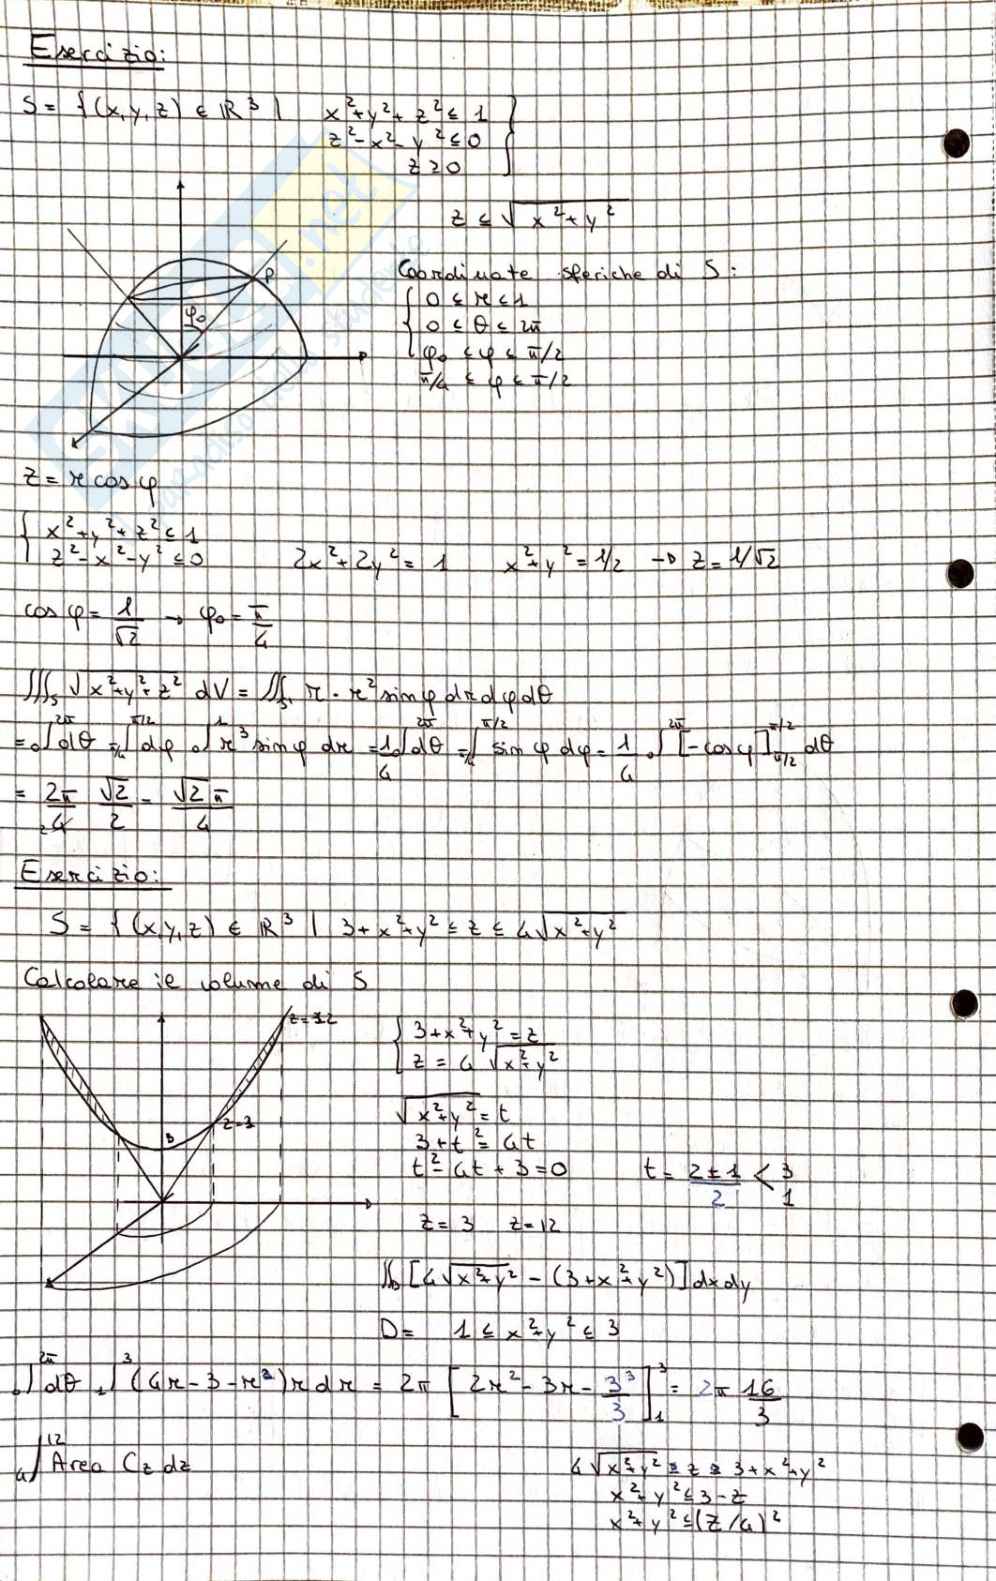 Esercizio:
S = {(x,y,z) ∈ ℝ³ | x²+y²+z² ≤ 1
z²-x²-y² ≤ 0
z ≥ 0 }
z ≤ √x²+y²
Coordinate sferiche di S:
{ 0 ≤ r ≤ 1
0 ≤ θ ≤ 2π
φ₀ ≤ φ ≤ π/2
π/4 ≤ φ ≤ π/2
P
φ₀
z = r cos φ
{ x²+y²+z² ≤ 1
z²-x²-y² ≤ 0 2x²+2y² = 1 x²+y² = 1/2 → z = 1/√2
cos φ = 1/√2 → φ₀ = π/4
∭s √x²+y²+z² dV = ∭s, r · r² sin φ dr dφ dθ
= ₀∫^2π dθ π/4∫^π/2 dφ ₀∫^1 r³ sin φ dr = 1/4 ₀∫^2π dθ π/4∫^π/2 sin φ dφ = 1/4 ₀∫^2π [-cos φ]^π/2_π/2 dθ
= 2π/4 √2/2 = √2 π/4
Esercizio:
S = {(x,y,z) ∈ ℝ³ | 3+x²+y² ≤ z ≤ 4√x²+y²
Calcolare il volume di S
z=12
{ 3+x²+y² = z
z = 4 √x²+y²
√x²+y² = t
z=3
3+t² = 4t
t²-4t+3=0 t = 2±1/2 < 3 1
z = 3 z = 12
∬D [4√x²+y² - (3+x²+y²)] dx dy
D = 1 ≤ x²+y² ≤ 3
₀∫^2π dθ ₁∫^3 (4r-3-r²) r dr = 2π [2r²-3r-3³/3]^3_1 = 2π 16/3
4∫^12 Area Cz dz 4√x²+y² ≥ z ≥ 3+x²+y²
x²+y² ≤ 3-z
x²+y² ≤ (z/4)²